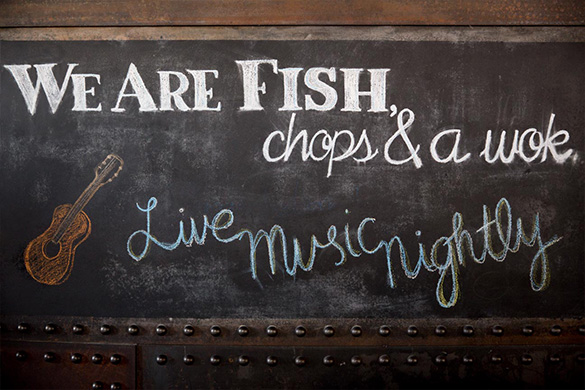 We Are Fish,
chops & a wok
Live Music nightly